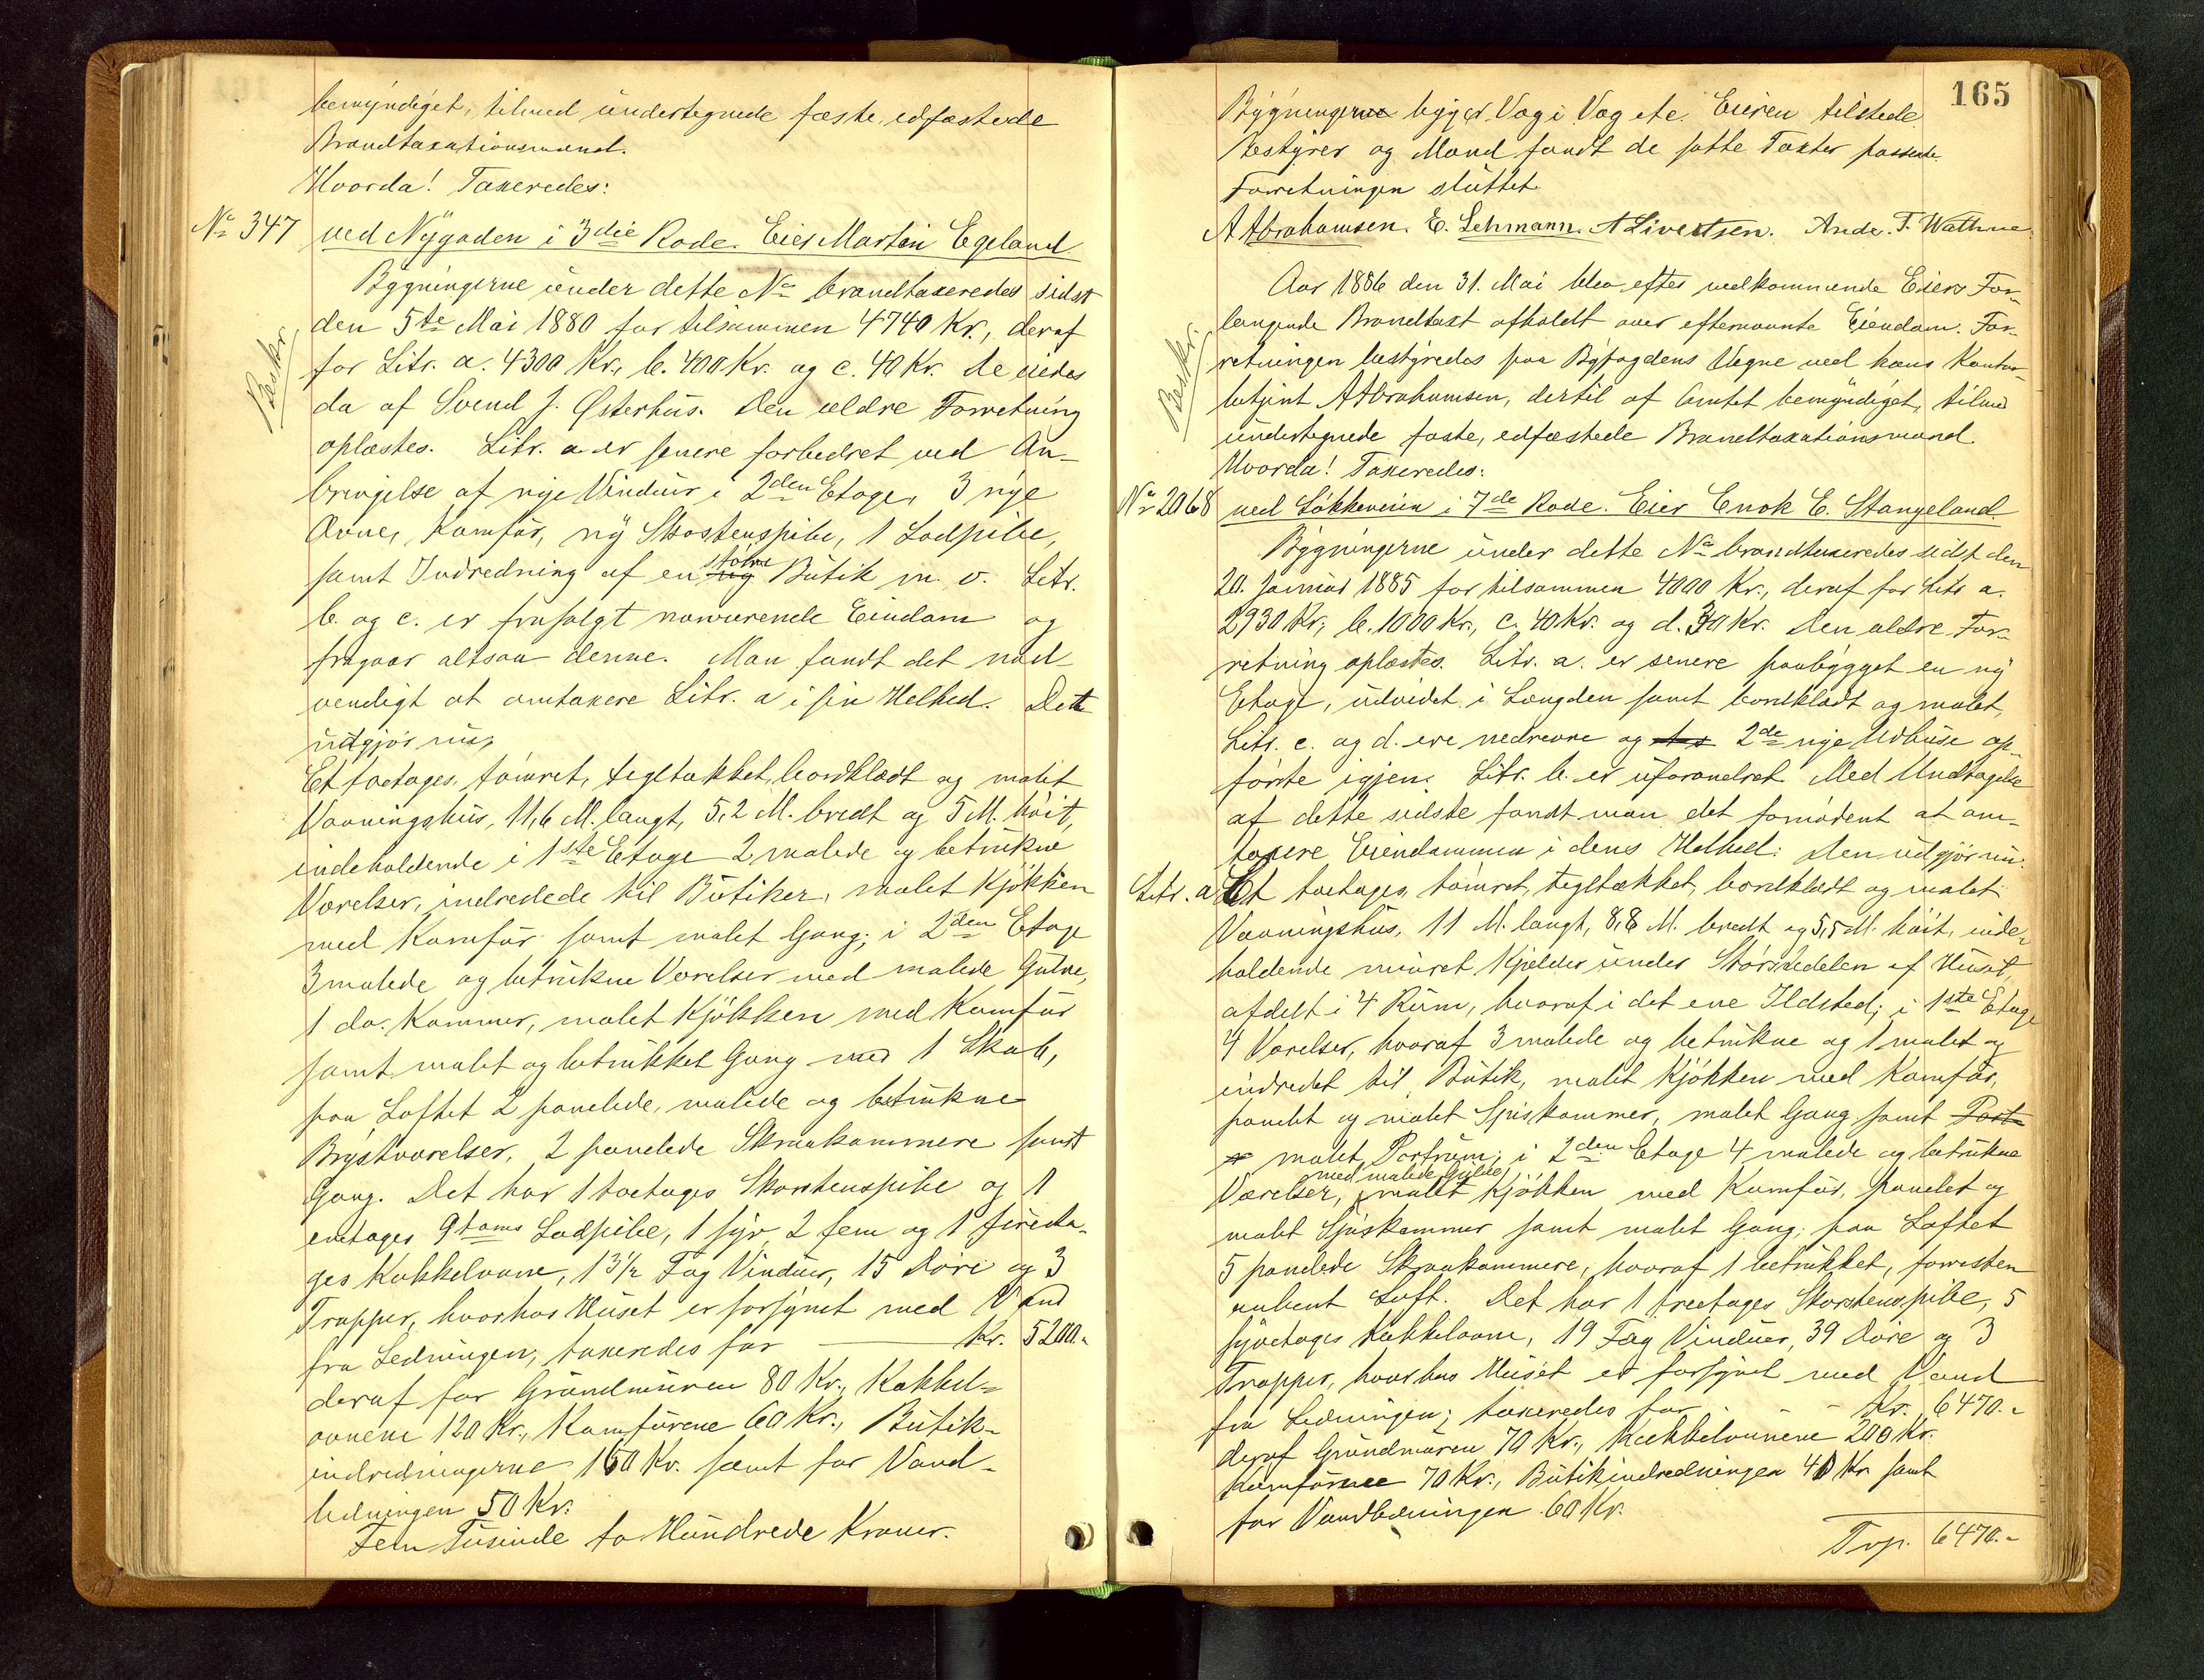 bemyndiget, tilmed undertegnede faste edfæstede
Brandtaxationsmænd.
Hvorda! Taxeredes:
No 347 ved Nygaden i 3die Rode. Eier Martin Egeland
Beskr.
Bygningerne under dette No brandtaxeredes sidst
den 5te Mai 1880 for tilsammen 4740 Kr., deraf
for Litr. a. 4300 Kr., b. 400 Kr. og c. 40 Kr. De eiedes
da af Svend J. Østerhus. Den ældre Forretning
oplæstes. Litr. a er senere forbedret ved An-
bringelse af nye Vinduer i 2den Etage, 3 nye
Ovne, Komfur, ny Skostenspibe, 1 Lodpibe,
samt Indredning af en ny større Butik m. v. Litr.
b. og c. er frasolgt nærværende Eiendom og
fragaar altsaa denne. Man fandt det nød-
vendigt at omtaxere Litr. a i sin Helhed. Dette
udgjør nu;
Et toetages, tømret, tegltækket, bordklædt og malet
Vaaningshus, 11,6 M. langt, 5,2 M. bredt og 5 M. høit,
indeholdende i 1ste Etage 2 malede og betrukne
Værelser, indredede til Butiker, malet Kjøkken
med Komfur samt malet Gang; i 2den Etage
3 malede og betrukne Værelser med malede Gulve,
1 do. Kammer, malet Kjøkken med Komfur
samt malet og betrukket Gang med 1 Skab,
paa Loftet 2 panelede, malede og betrukne
Brystværelser, 2 panelede Skraakammere samt
Gang. Det har 1 toetages Skorstenspibe og 1
entages 9toms Lodpibe, 1 syv, 2 fem og 1 fireeta-
ges Kakkelovne, 13½ Fag Vinduer, 15 Døre og 3
Trapper, hvorhos Huset er forsynet med Vand
fra Ledningen; taxeredes for Kr. 5200.-
deraf for Grundmuren 80 Kr., Kakkel-
ovnene 120 Kr., Komfurene 60 Kr., Butik-
indredningerne 150 Kr. samt for Vand-
ledningen 50 Kr.
Fem Tusinde to Hundrede Kroner.
165
Bygningerne ligger Væg i Væg etc. Eieren tilstede.
Bestyrer og Mænd fandt de satte Taxter passende.
Forretningen sluttet.
A Abrahamsen. E. Lehmann. A Sivertsen. Ande. T. Wathne
Beskr.
Aar 1886 den 31. Mai blev efter vedkommende Eiers For-
langende Brandtaxt afholdt over efternævnte Eiendom. For-
retningen bestyredes paa Byfogdens Vegne ved hans Kontor-
betjent A Abrahamsen, dertil af Amtet bemyndiget, tilmed
undertegnede faste, edfæstede Brandtaxationsmænd.
Hvorda! Taxeredes:
No 2068 ved Løkkeveien i 7de Rode. Eier Enok E. Stangeland.
Bygningerne under dette No brandtaxeredes sidst den
20. Januar 1885 for tilsammen 4000 Kr., deraf for Litr a.
2930 Kr., b. 1000 Kr., c. 40 Kr. og d. 30 Kr. Den ældre For-
retning oplæstes. Litr. a. er senere paabygget en ny
Etage, udvidet i Længden samt bordklædt og malet,
Litr. c. og d. ere nedrevne og 2de nye Udhuse op-
førte igjen. Litr. b. er uforandret Med Undtagelse
af dette sidste fandt man det fornødent at om-
taxere Eiendommen i dens Helhed: Den udgjør nu:
Litr. a Et toetages, tømret, tegltækket, bordklædt og malet
Vaaningshus, 11 M. langt, 8,8 M. bredt og 5,5 M. høit, inde-
holdende muret Kjelder under Størstedelen af Huset,
afdelt i 4 Rum, hvoraf i det ene Ildsted; i 1ste Etage
4 Værelser, hvoraf 3 malede og betrukne og 1 malet og
indredet til Butik, malet Kjøkken med Komfur,
panelet og malet Spiskammer, malet Gang samt Port-
malet Portrum; i 2den Etage 4 malede og betrukne
Værelser, med malede Gulve, malet Kjøkken med Komfur, panelet og
malet Spiskammer samt malet Gang; paa Loftet
5 panelede Skraakammere, hvoraf 1 betrukket, forresten
aabent Loft. Det har 1 treetages Skorstenspibe, 5
syvetages Kakkelovne, 19 Fag Vinduer, 39 Døre og 3
Trapper, hvorhos Huset er forsynet med Vand
fra Ledningen; taxeredes for - - Kr. 6470.-
deraf Grundmuren 70 Kr., Kakkelovnene 200 Kr.
Komfurene 70 Kr., Butikindredningen 40 Kr samt
for Vandledningen 60 Kr.
Trp. 6470.-